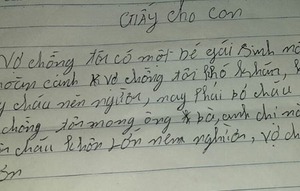 Giấy cho con
Vợ chồng tôi có một bé gái Sinh
hoàn cảnh K vợ chồng tôi khó khăn,
cháu nên người, nay phải bỏ cháu
chồng tôi mong ông bà, anh chị
cháu khôn lớn nêm người, vợ
ơn